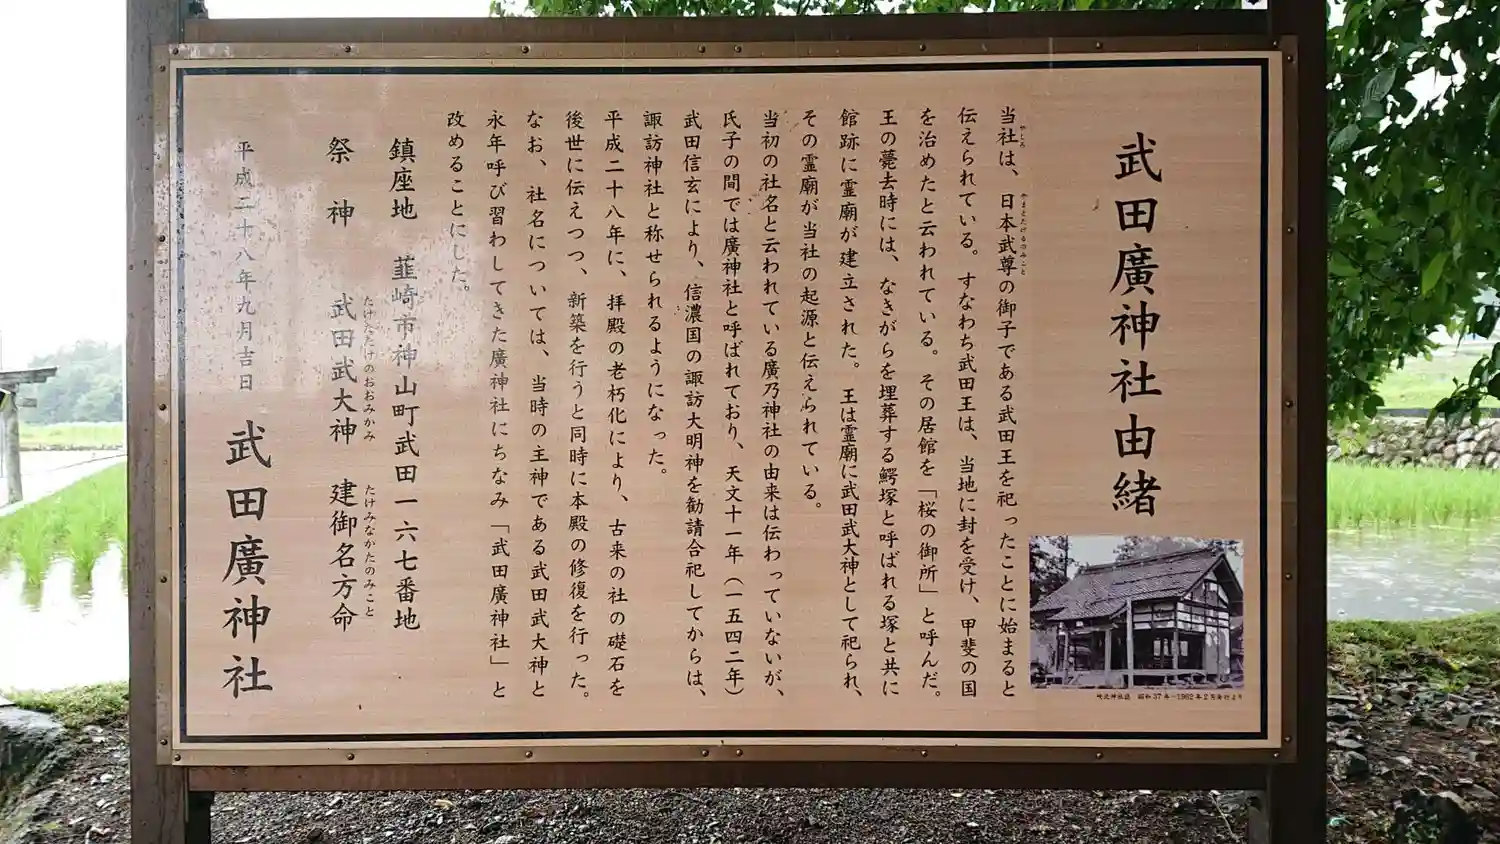 武田廣神社由緒
当社は、日本武尊の御子である武田王を祀ったことに始まると
やしろ
やまとたけるのみこと
伝えられている。すなわち武田王は、当地に封を受け、甲斐の国
を治めたと云われている。その居館を「桜の御所」と呼んだ。
王の薨去時には、なきがらを埋葬する鰐塚と呼ばれる塚と共に
館跡に霊廟が建立された。王は霊廟に武田武大神として祀られ、
その霊廟が当社の起源と伝えられている。
当初の社名と云われている廣乃神社の由来は伝わっていないが、
氏子の間では廣神社と呼ばれており、天文十一年（一五四二年）
武田信玄により、信濃国の諏訪大明神を勧請合祀してからは、
諏訪神社と称せられるようになった。
平成二十八年に、拝殿の老朽化により、古来の社の礎石を
後世に伝えつつ、新築を行うと同時に本殿の修復を行った。
なお、社名については、当時の主神である武田武大神と
永年呼び習わしてきた廣神社にちなみ「武田廣神社」と
改めることにした。
鎮座地　韮崎市神山町武田一六七番地
祭神　武田武大神　建御名方命
たけたたけのおおみかみ
たけみなかたのみこと
平成二十八年九月吉日　武田廣神社
昭和37年-1962年2月発行より